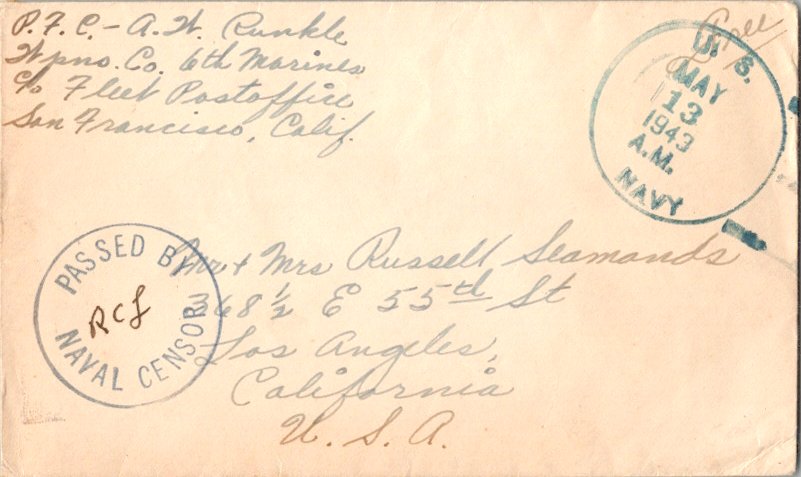 P.F.C. - A.W. Runkle
Wpns. Co. 6th Marines
c/o Fleet Postoffice
San Francisco, Calif.
Free
U. S.
MAY
13
1943
A.M.
NAVY
PASSED BY
RCJ
NAVAL CENSOR
Mr + Mrs Russell Seamands
368 1/2 E 55th St
Los Angeles,
California
U. S. A.